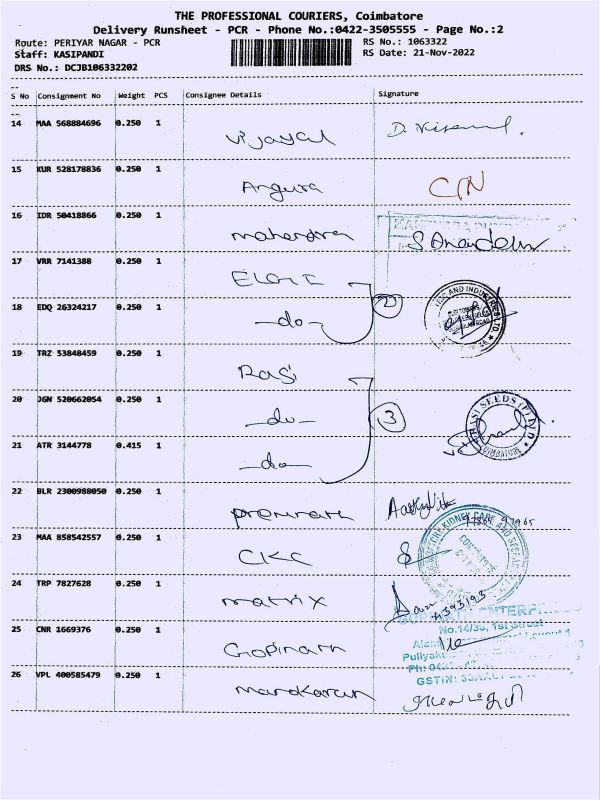 THE PROFESSIONAL COURIERS, Coimbatore
Delivery Runsheet - PCR - Phone No.:0422-3505555 - Page No.:2
Route: PERIYAR NAGAR - PCR
RS No.: 1063322
Staff: KASIPANDI
RS Date: 21-Nov-2022
DRS No.: DCJB106332202
S No Consignment No Weight PCS Consignee Details Signature
14 MAA 568884696 0.250 1 Vijayal
15 KUR 528178836 0.250 1 Angura
16 IDR 50418866 0.250 1 mahendra
17 VRR 7141388 0.250 1 ELGI
18 EDQ 26324217 0.250 1 -do- 2
19 TRZ 53848459 0.250 1 Rasi
20 JGN 520662054 0.250 1 -do- 3
RASI SEEDS (P) LTD
21 ATR 3144778 0.415 1 -do-
22 BLR 2300988050 0.250 1 premnath
23 MAA 858542557 0.250 1 CKC
KIDNEY CARE AND
24 TRP 7827628 0.250 1 matrix
No.14/30, 1st Street
25 CNR 1669376 0.250 1 Gopinath
GSTIN:
26 VPL 400585479 0.250 1